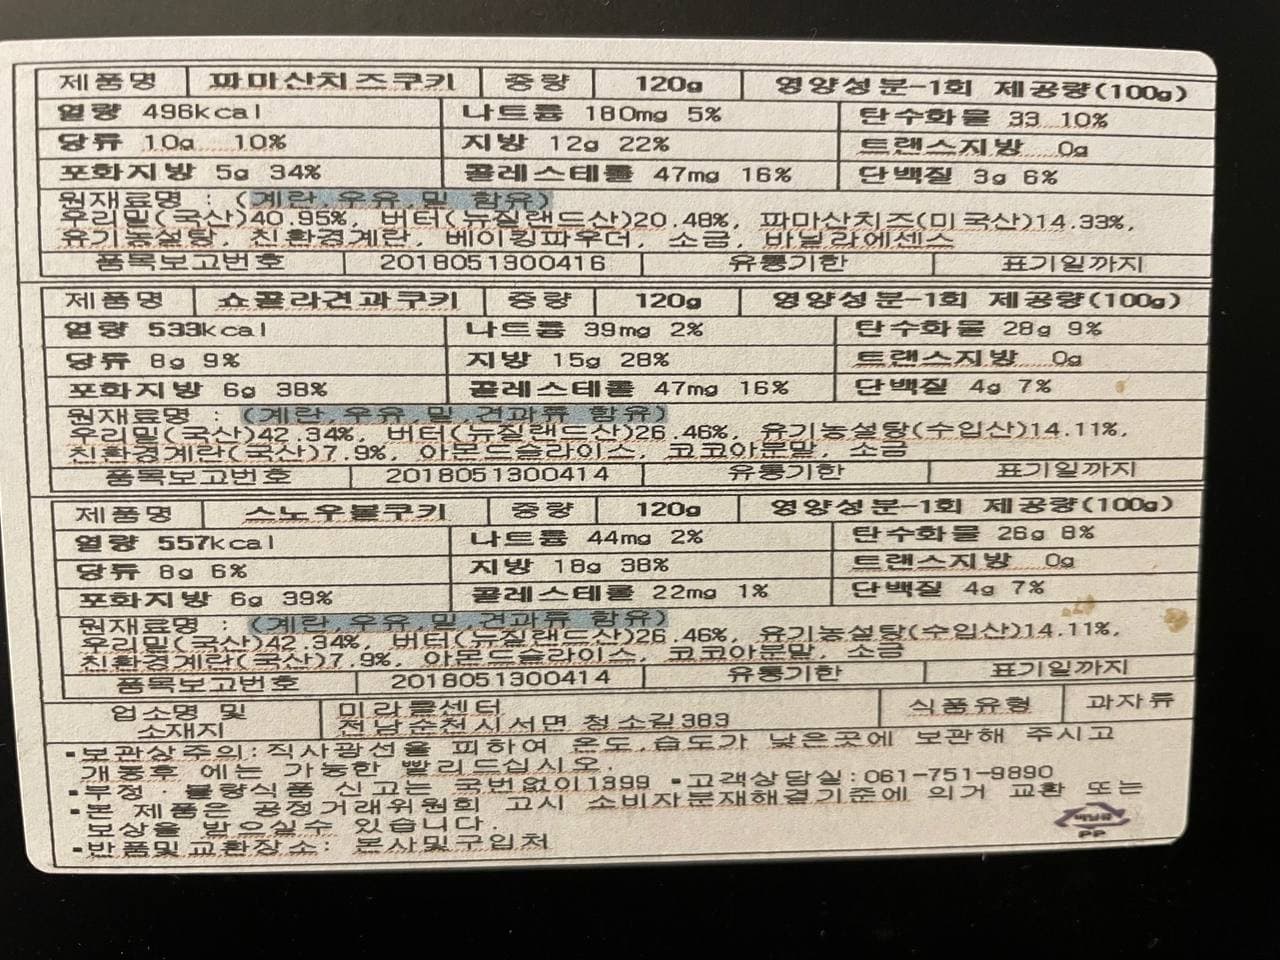 제품명 파마산치즈쿠키 중량 120g 영양성분-1회 제공량(100g)
열량 496kcal 나트륨 180mg 5% 탄수화물 33 10%
당류 10g 10% 지방 12g 22% 트랜스지방 0g
포화지방 5g 34% 콜레스테롤 47mg 16% 단백질 3g 6%
원재료명 : (계란,우유,밀 함유)
우리밀(국산)40.95%, 버터(뉴질랜드산)20.48%, 파마산치즈(미국산)14.33%,
유기농설탕, 친환경계란, 베이킹파우더, 소금, 바닐라에센스
품목보고번호 2018051300416 유통기한 표기일까지
제품명 쇼콜라견과쿠키 중량 120g 영양성분-1회 제공량(100g)
열량 533kcal 나트륨 39mg 2% 탄수화물 28g 9%
당류 8g 9% 지방 15g 28% 트랜스지방 0g
포화지방 6g 38% 콜레스테롤 47mg 16% 단백질 4g 7%
원재료명 : (계란,우유,밀,견과류 함유)
우리밀(국산)42.34%, 버터(뉴질랜드산)26.46%, 유기농설탕(수입산)14.11%,
친환경계란(국산)7.9%, 아몬드슬라이스, 코코아분말, 소금
품목보고번호 2018051300414 유통기한 표기일까지
제품명 스노우볼쿠키 중량 120g 영양성분-1회 제공량(100g)
열량 557kcal 나트륨 44mg 2% 탄수화물 26g 8%
당류 8g 6% 지방 18g 38% 트랜스지방 0g
포화지방 6g 39% 콜레스테롤 22mg 1% 단백질 4g 7%
원재료명 : (계란,우유,밀,견과류 함유)
우리밀(국산)42.34%, 버터(뉴질랜드산)26.46%, 유기농설탕(수입산)14.11%,
친환경계란(국산)7.9%, 아몬드슬라이스, 코코아분말, 소금
품목보고번호 2018051300414 유통기한 표기일까지
업소명 및 소재지 미라클센터 식품유형 과자류
전남순천시서면 청소길383
▪보관상주의:직사광선을 피하여 온도,습도가 낮은곳에 보관해 주시고
개봉후 에는 가능한 빨리드십시오.
▪부정·불량식품 신고는 국번없이1399 ▪고객상담실:061-751-9890
▪본 제품은 공정거래위원회 고시 소비자분재해결기준에 의거 교환 또는
보상을 받으실수 있습니다.
▪반품및교환장소: 본사및구입처
비닐류
PP